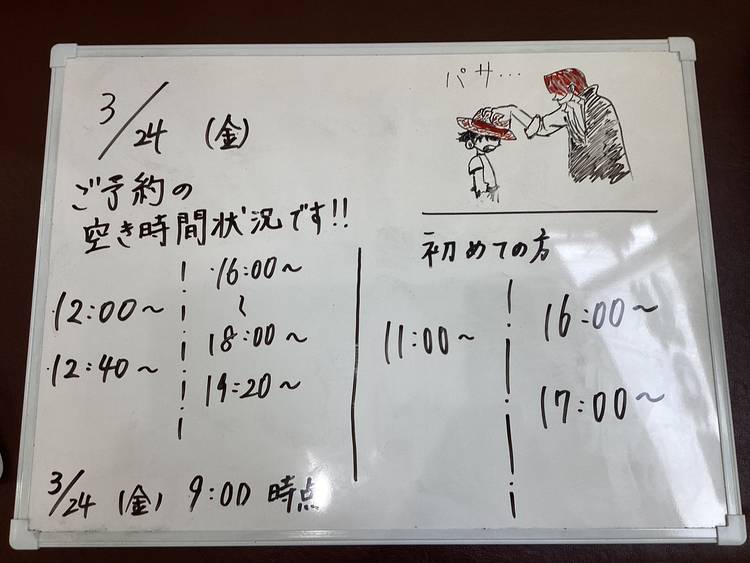 3/24 (金)
ご予約の
空き時間状況です!!
12:00～
12:40～
16:00～
～
18:00～
19:20～
パサ...
初めての方
11:00～
16:00～
17:00～
3/24 (金) 9:00 時点